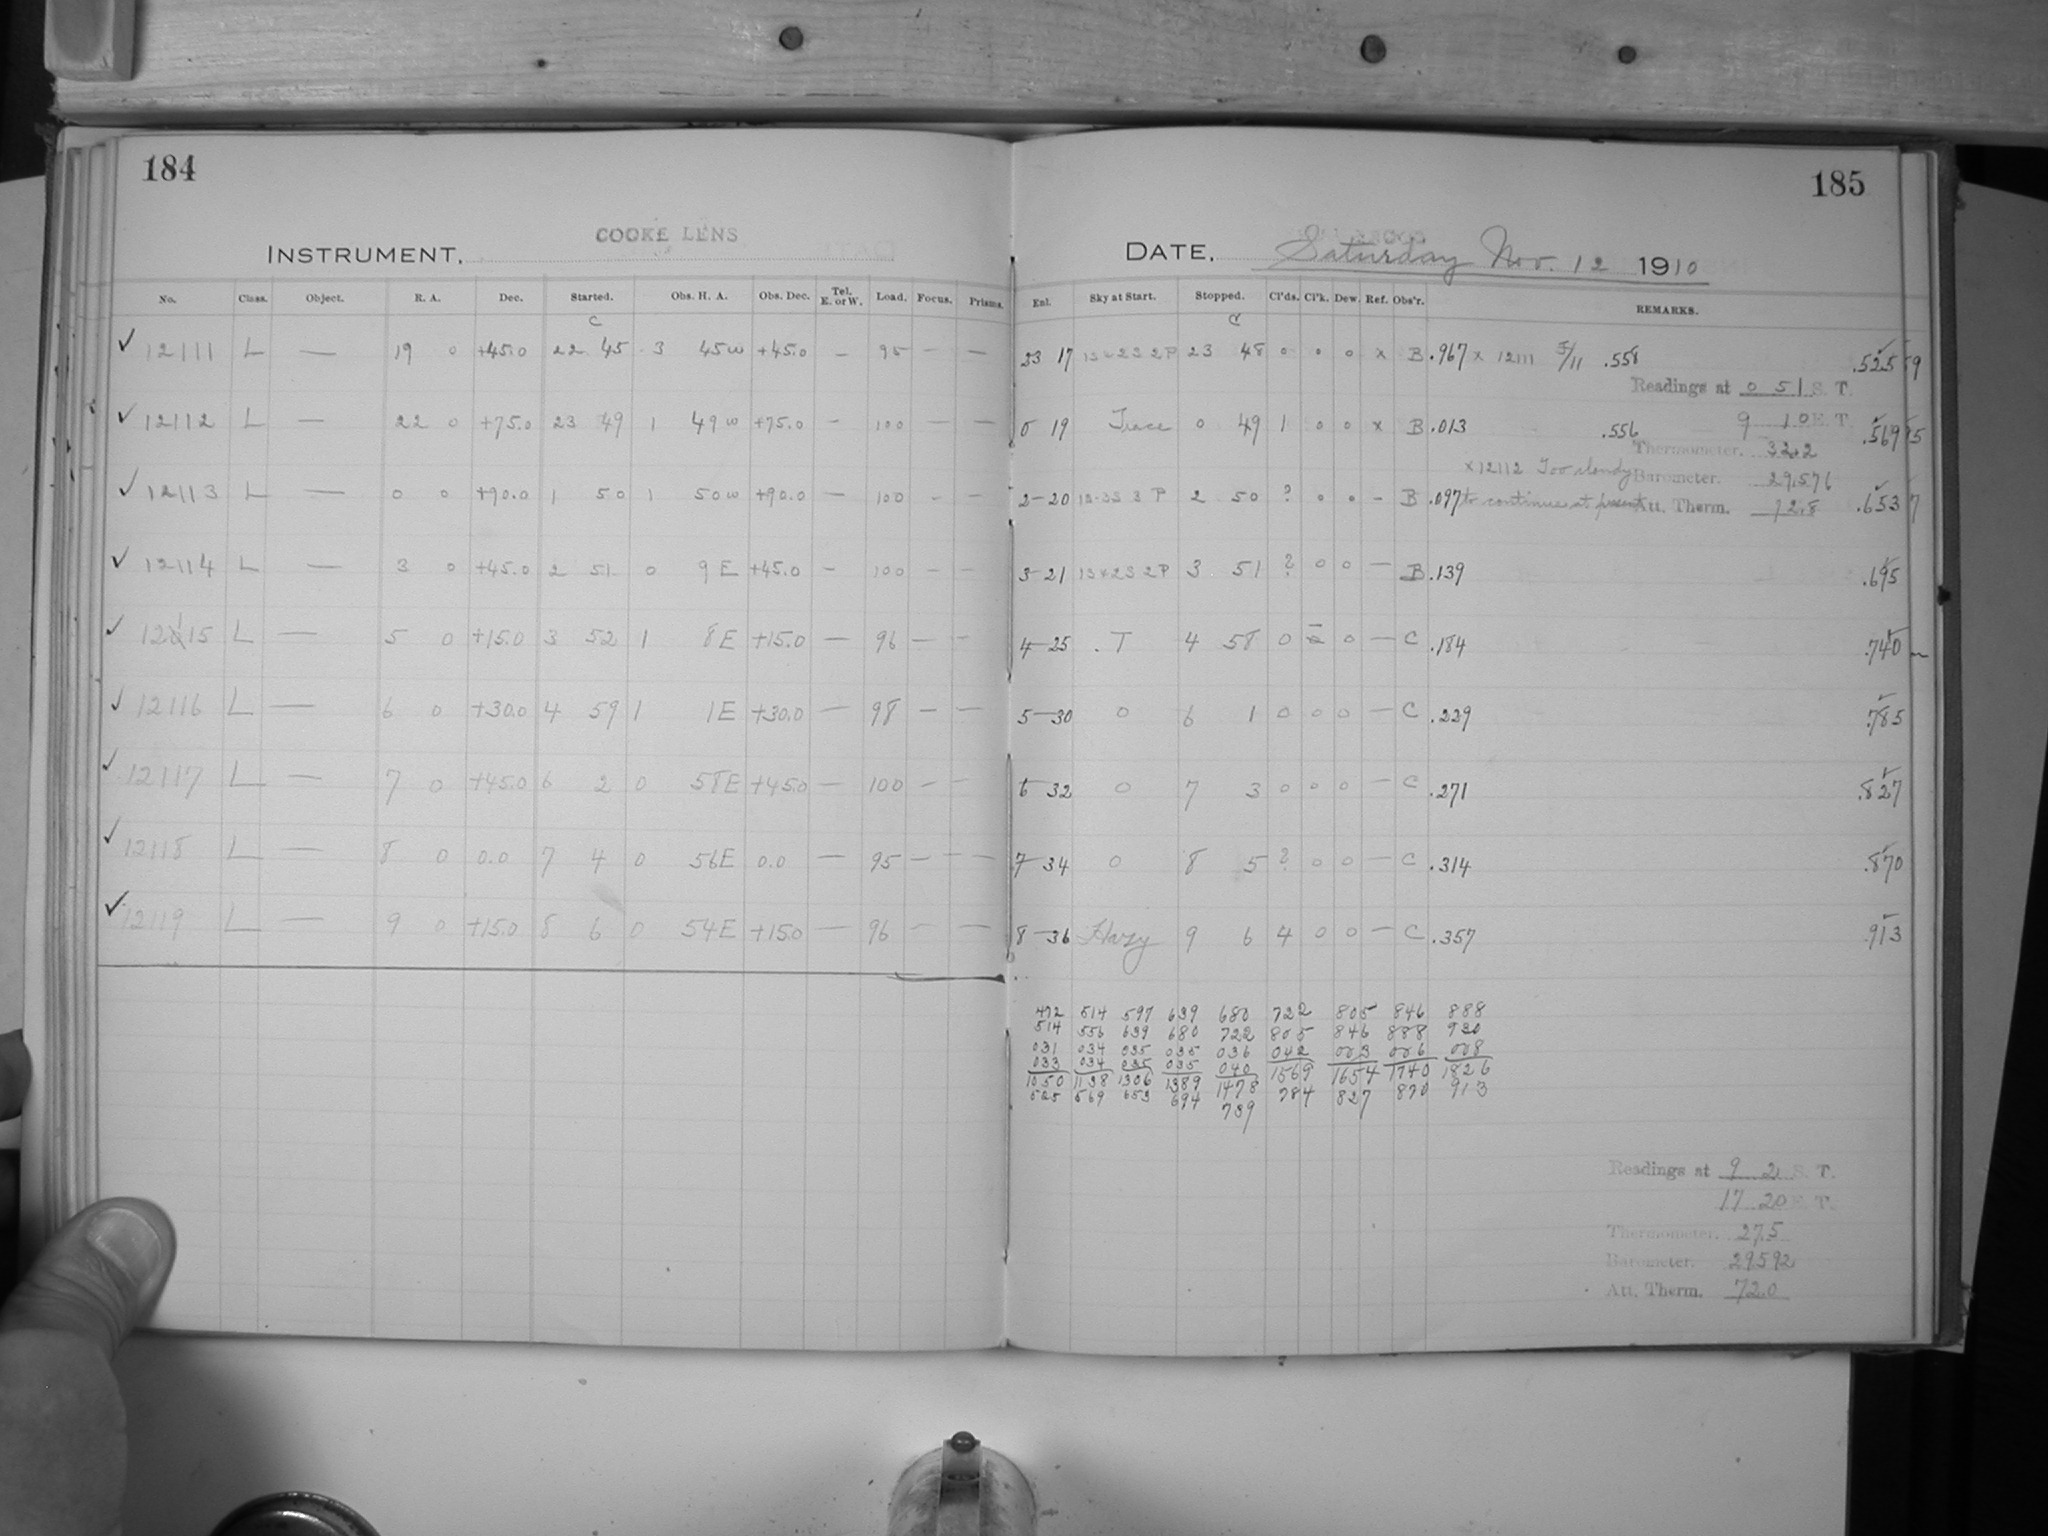 184
185
COOKE LENS
INSTRUMENT,
DATE, Saturday Nov. 12 1910
No. Class. Object. R. A. Dec. Started. Obs. H. A. Obs. Dec. Tel. E. or W. Load. Focus. Prisms. Enl. Sky at Start. Stopped. Cl'ds. Cl'k. Dew. Ref. Obs'r. REMARKS.
C C
✓ 12111 L — 19 0 +45.0 22 45 3 45w +45.0 — 95 — — 23 17 13x23 2P 23 48 0 0 0 x B .967 x 12m 5/11 .558 .525
Readings at 0 51 S. T.
✓ 12112 L — 22 0 +75.0 23 49 1 49w +75.0 — 100 — — 0 19 Trace 0 49 1 0 0 x B .013 .556 9 10 E. T. .569
Thermometer. 33.2
x 12112 Too cloudy Barometer. 29.576
✓ 12113 L — 0 0 +90.0 1 50 1 50w +90.0 — 100 — — 2-20 2 50 ? 0 0 — B .097 to continue at present Att. Therm. 72.8 .653
✓ 12114 L — 3 0 +45.0 2 51 0 9E +45.0 — 100 — — 3-21 13x23 2P 3 51 ? 0 0 — B .139 .695
✓ 12115 L — 5 0 +15.0 3 52 1 8E +15.0 — 96 — — 4-25 T 4 58 0 0 — C .184 .740
✓ 12116 L — 6 0 +30.0 4 59 1 1E +30.0 — 98 — — 5-30 0 6 1 0 0 0 — C .229 .785
✓ 12117 L — 7 0 +45.0 6 2 0 58E +45.0 — 100 — — 6 32 0 7 3 0 0 0 — C .271 .827
✓ 12118 L — 8 0 0.0 7 4 0 56E 0.0 — 95 — — 7-34 0 8 5 ? 0 0 — C .314 .870
✓ 12119 L — 9 0 +15.0 8 6 0 54E +15.0 — 96 — — 8-36 Hazy 9 6 4 0 0 — C .357 .913
472 514 597 639 680 722 805 846 888
514 556 639 680 722 805 846 888 930
031 034 035 035 036 042 003 006 008
033 034 035 035 040 1569 1654 1740 1826
1050 1138 1306 1389 1478 784 827 870 913
525 569 653 694 739
Readings at 9 2 S. T.
17 20 E. T.
Thermometer. 27.5
Barometer. 29.592
Att. Therm. 72.0